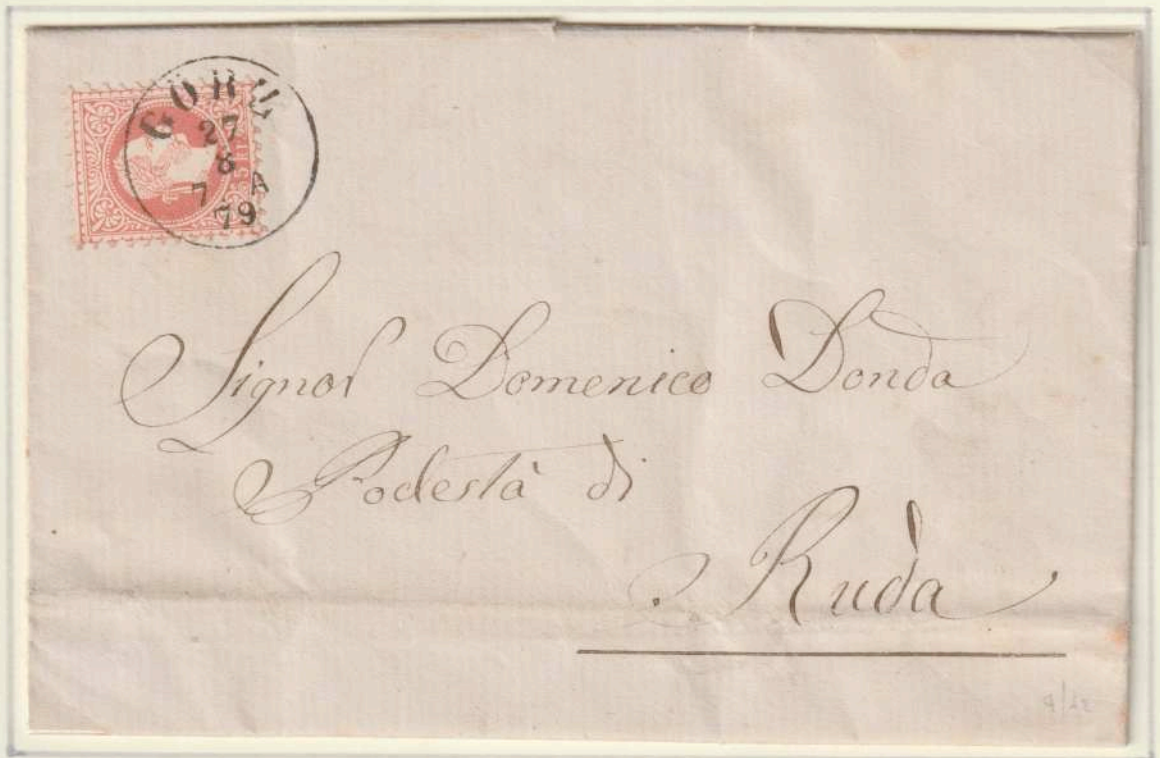 GÖRZ
27
8
7 A
79
5 KR
Signor Domenico Donda
Podestà di
Ruda